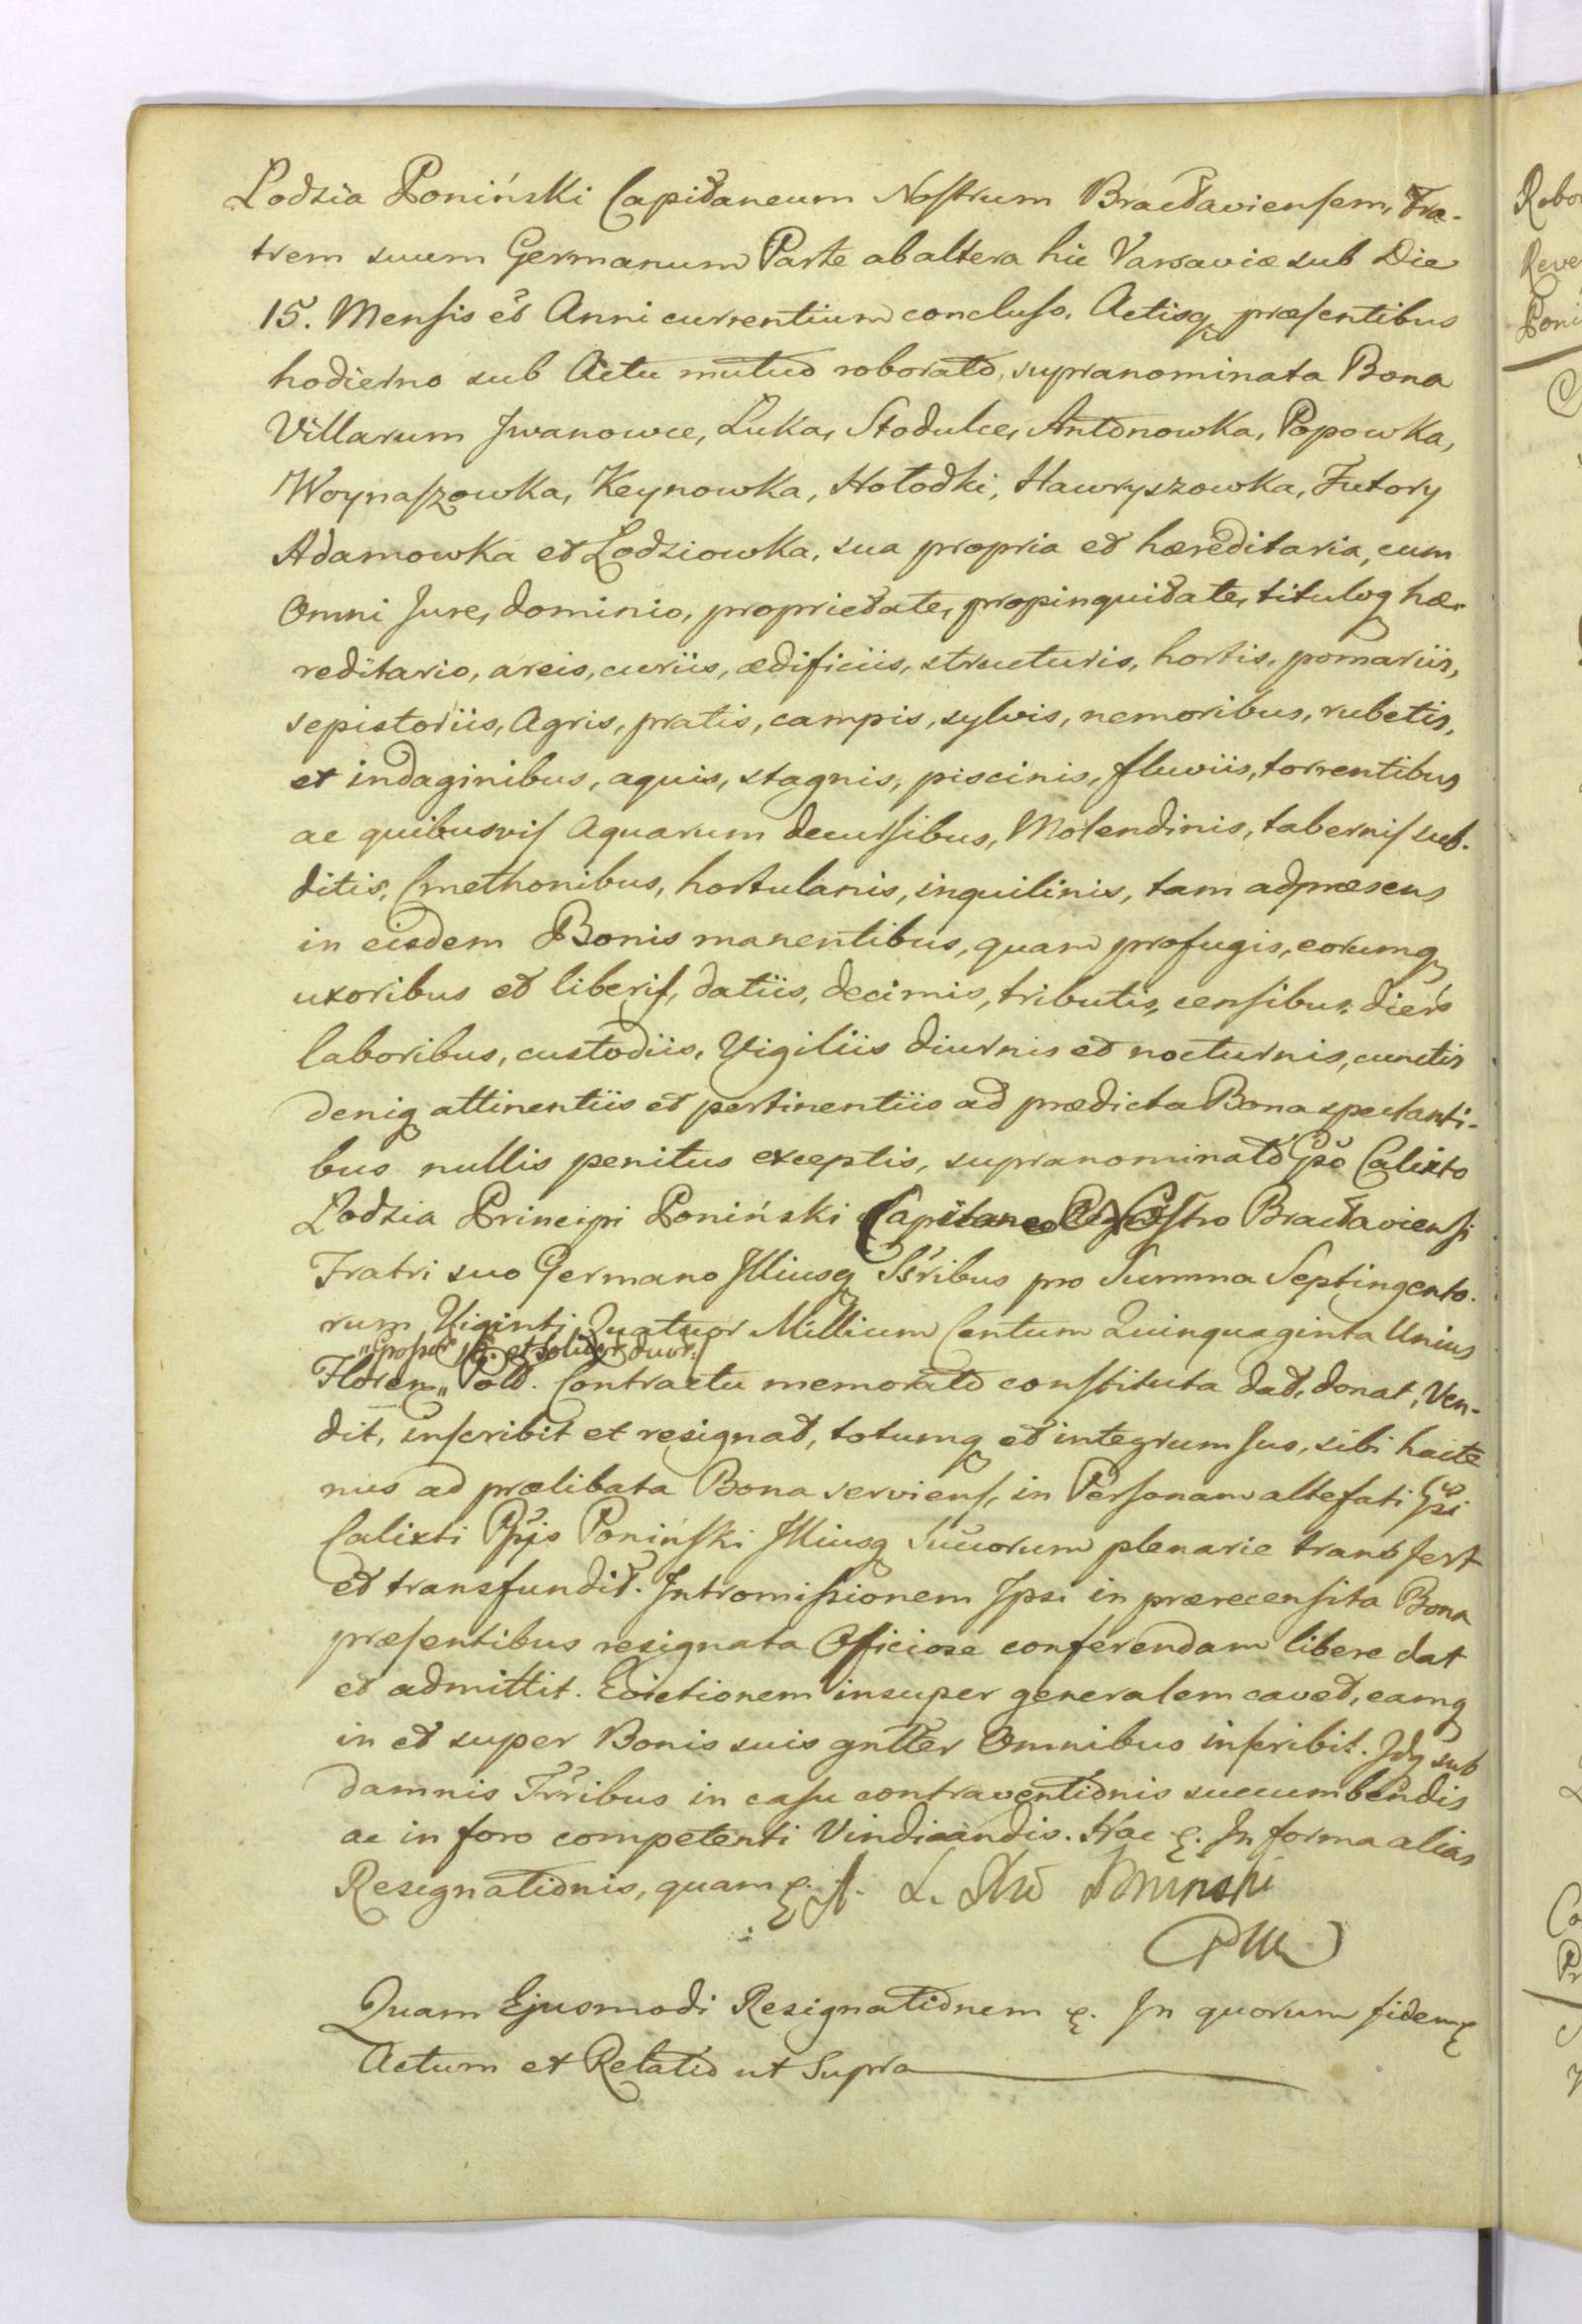 Lodzia Poniński Capitaneum Nostrum Bracłaviensem, Fra-
trem suum Germanum Parte ab altera hic Varsaviæ sub Die
15. Mensis et Anni currentium concluso, Actisq præsentibus
hodierno sub Actu mutuo roborato, supranominata Bona
Villarum Jwanowce, Luka, Stodulce, Antonowka, Popowka,
Woynaszowka, Keynowka, Hołodki, Hawryszowka, Futory
Adamowka et Lodziowka, sua propria et hæreditaria, cum
Omni Jure, dominio, proprietate, propinquitate, tituloq hæ-
reditario, areis, curiis, ædificiis, structuris, hortis, pomariis,
sepistoriis, Agris, pratis, campis, sylvis, nemoribus, rubetis,
et indaginibus, aquis, stagnis, piscinis, fluviis, torrentibus
ac quibusvis Aquarum decursibus, Molendinis, tabernis sub-
ditis, Cmethonibus, hortulanis, inquilinis, tam adpræsens
in eisdem Bonis manentibus, quam profugis, eorumq
uxoribus et liberis, datiis, decimis, tributis, censibus, dierš
laboribus, custodiis, Vigiliis diurnis et nocturnis, cunctis
deniq attinentiis et pertinentiis ad prædicta Bona spectanti-
bus nullis penitus exceptis, supranominato Gso Calixto
Lodzia Principi Poniński Capitaneo Bracłaviensi
Fratri suo Germano Jlliusq Ssribus pro Summa Septingento-
rum Viginti Quatuor Millium Centum Quinquaginta Unius
et solid. duor.
Floren. Pold. Contractu memorato constituta dat, donat, Ven-
dit, inscribit et resignat, totumq et integrum Jus, sibi hacte
nus ad prælibata Bona serviens, in Personam altefati Gsi
Calixti Ppis Poniński Jlliusq Succorum plenarie transfert
et transfundit. Intromissionem Ipsi in prærecensita Bona
præsentibus resignata Officiose conferendam libere dat
et admittit. Evictionem insuper generalem cavet, eamq
in et super Bonis suis gntter Omnibus inscribit. Jdq sub
damnis Trribus in casu contraventionis succumbendis
ac in foro competenti Vindicandis. Hac &. In forma alias
Resignationis, quam &. A. L. Poninski
Quam Ejusmodi Resignationem &. In quorum fidem &
Actum et Relatio ut Supra